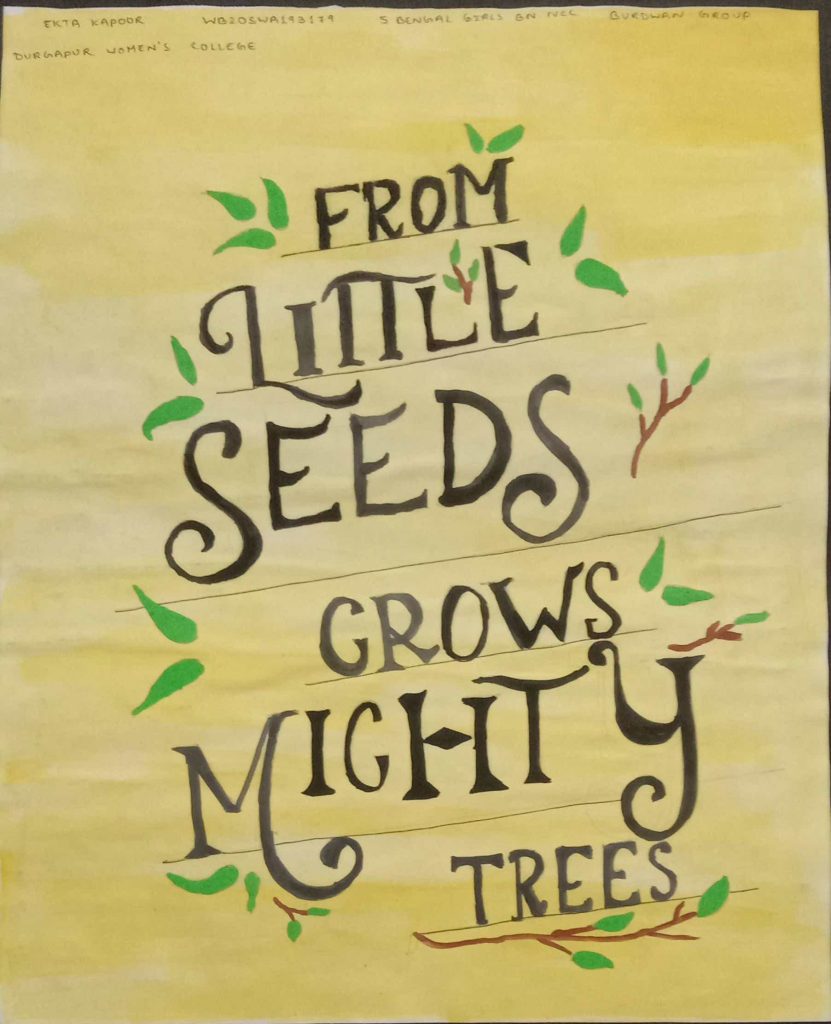 EKTA KAPOOR WB20SWA193179 5 BENGAL GIRLS BN NCC BURDWAN GROUP
DURGAPUR WOMEN'S COLLEGE
FROM
LITTLE
SEEDS
GROWS
MIGHTY
TREES